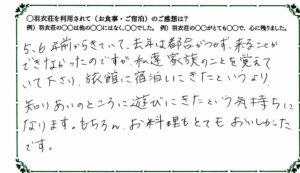 ○羽衣荘を利用されて（お食事・ご宿泊）のご感想は？
例）羽衣荘の○○は他の○○にはなく、○○でした。 例）羽衣荘の○○がとても○○で、心に残りました。
5、6年前からきていて、去年は都合がつかず、来ることが
できなかったのですが、私達家族のことを覚えて
いて下さり、旅館に宿泊しにきたというより、
知りあいのところに遊びにきたという気持ちに
なります。もちろん、お料理もとてもおいしかった
です。